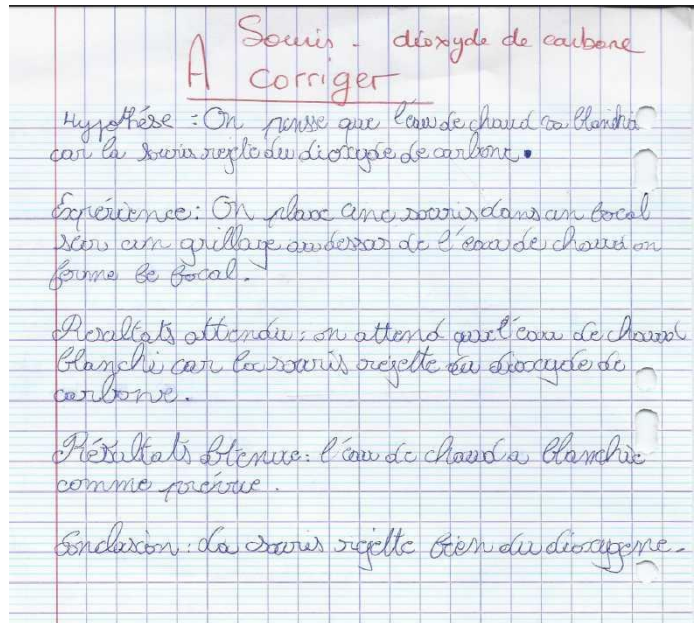 Souris - dioxyde de carbone
A corriger
Hypothése : On pensse que l'eau de chaud va blanchir
car la souris rejète du dioxyde de carbone.
Expérience : On place une souris dans un bocal
sur un grillage au dessus de l'eau de chaud on
ferme le bocal.
Resultats attendu : on attend que l'eau de chaud
blanchi car la souris rejette du dioxyde de
carbone.
Résultats obtenue : l'eau de chaud a blanchie
comme prévue.
Conclusion : La souris rejette bien du dioxygene.